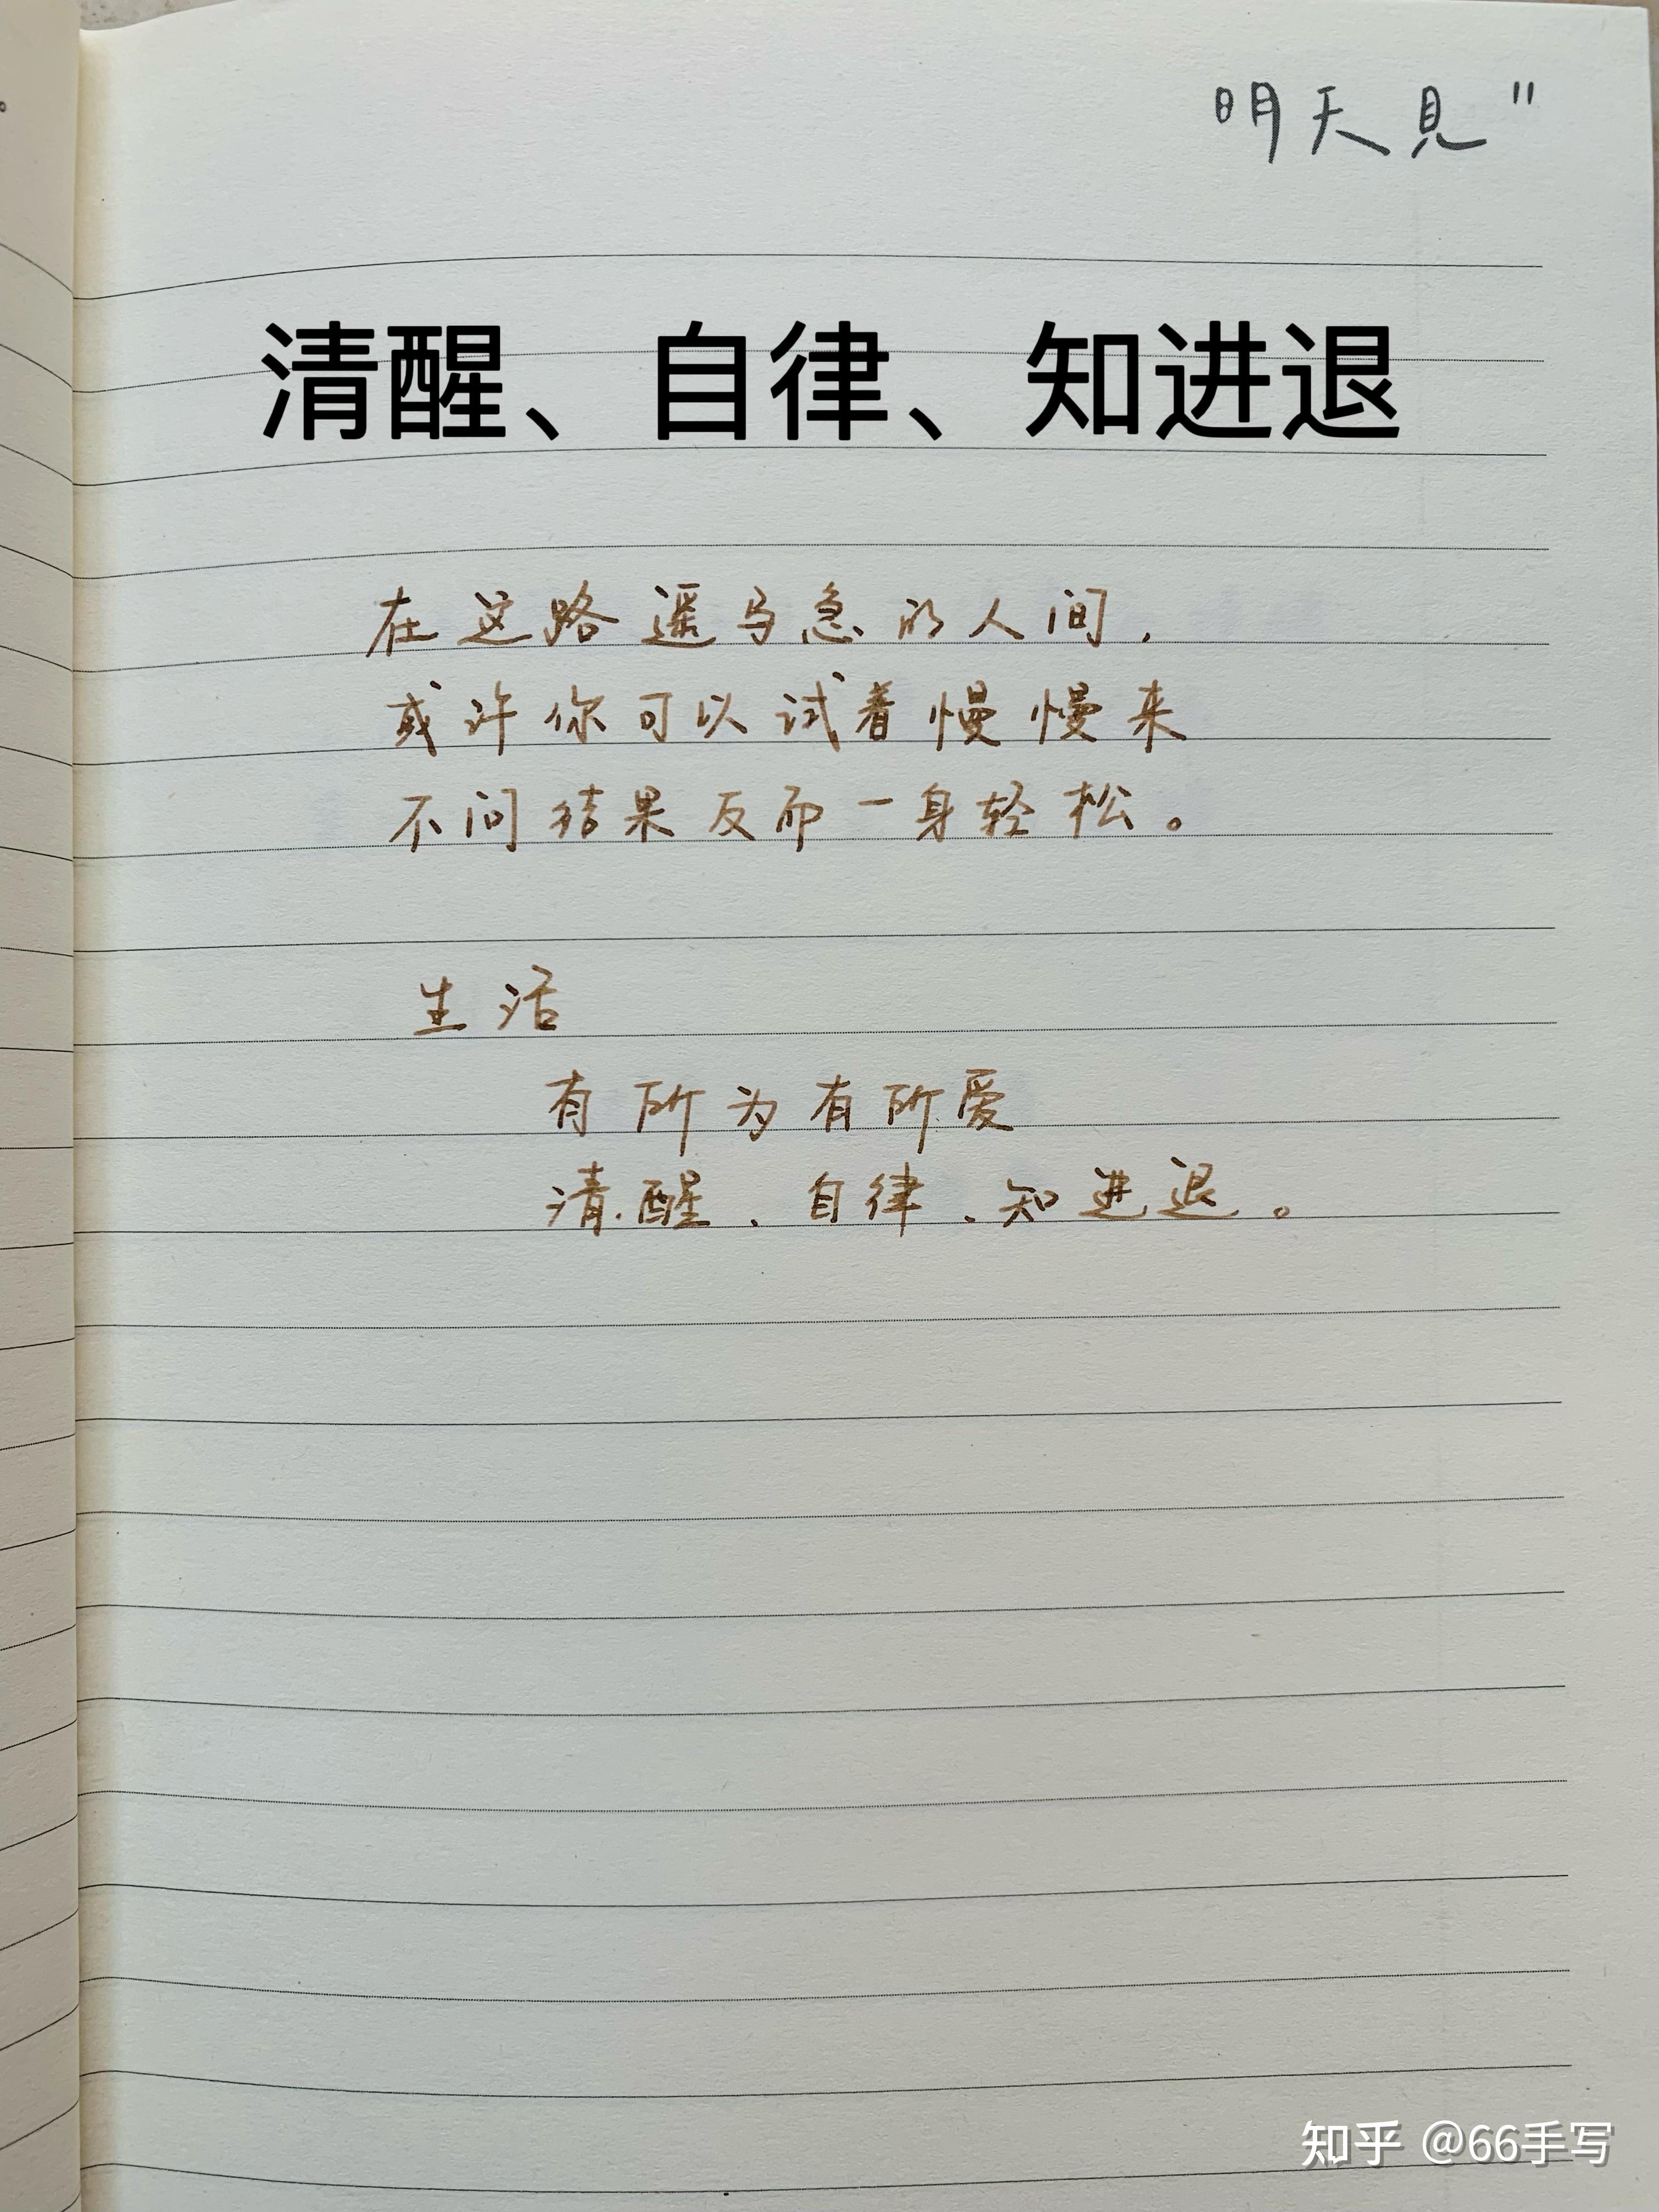 明天見"
清醒、自律、知进退
在这路遥马急的人间，
或许你可以试着慢慢来
不问结果反而一身轻松。
生活
有所为有所爱
清醒、自律、知进退。
知乎 @66手写